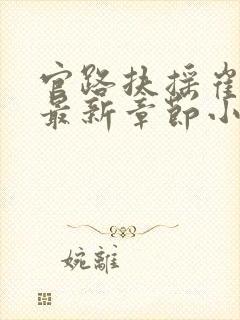 官路扶摇崔
最新章节小
婉離